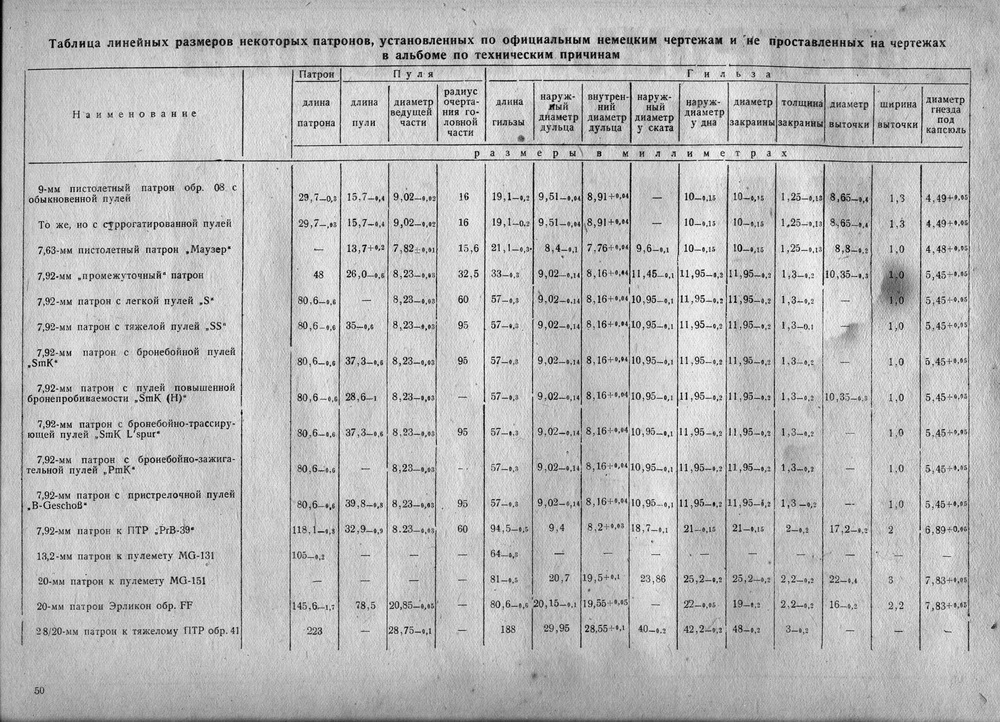 Таблица линейных размеров некоторых патронов, установленных по официальным немецким чертежам и не проставленных на чертежах
в альбоме по техническим причинам
Наименование
Патрон
Пуля
Гильза
длина патрона
длина пули
диаметр ведущей части
радиус очертания головной части
длина гильзы
наружный диаметр дульца
внутренний диаметр дульца
наружный диаметр у ската
наруж- диаметр у дна
диаметр закраины
толщина закраины
диаметр выточки
ширина выточки
диаметр гнезда под капсюль
размеры в миллиметрах
9-мм пистолетный патрон обр. 08 с
обыкновенной пулей 29,7—0,3 15,7—0,4 9,02—0,02 16 19,1—0,2 9,51—0,04 8,91+0,04 — 10—0,15 10—0,15 1,25—0,13 8,65—0,4 1,3 4,49+0,05
То же, но с суррогатированной пулей 29,7—,03 15,7—0,4 9,02—0,02 16 19,1—0,2 9,51—0,04 8,91+0,04 — 10—0,15 10—0,15 1,25—0,13 8,65—0,4 1,3 4,49+0,05
7,63-мм пистолетный патрон „Маузер“ — 13,7+0,3 7,82±0,01 15,6 21,1—0,3 8,4—0,1 7,76+0,04 9,6—0,1 10—0,15 10—0,15 1,25—0,13 8,8—0,2 1,0 4,48+0,05
7,92-мм „промежуточный“ патрон 48 26,0—0,6 8,23—0,03 32,5 33—0,3 9,02—0,14 8,16+0,04 11,45—0,1 11,95—0,2 11,95—0,2 1,3—0,2 10,35—0,3 1,0 5,45+0,05
7,92-мм патрон с легкой пулей „S“ 80,6—0,6 — 8,23—0,03 60 57—0,3 9,02—0,14 8,16+0,04 10,95—0,1 11,95—0,2 11,95—0,2 1,3—0,2 — 1,0 5,45+0,05
7,92-мм патрон с тяжелой пулей „SS“ 80,6—0,6 35—0,6 8,23—0,03 95 57—0,3 9,02—0,14 8,16+0,04 10,95—0,1 11,95—0,2 11,95—0,2 1,3—0,1 — 1,0 5,45+0,05
7,92-мм патрон с бронебойной пулей
„SmK“ 80,6—0,6 37,3—0,6 8,23—0,03 95 57—0,3 9,02—0,14 8,16+0,04 10,95—0,1 11,95—0,2 11,95—0,2 1,3—0,2 — 1,0 5,45+0,05
7,92-мм патрон с пулей повышенной
бронепробиваемости „SmK (H)“ 80,6—0,6 28,6—1 8,23—0,03 — 57—0,3 9,02—0,14 8,16+0,04 10,95—0,1 11,95—0,2 11,95—0,2 1,3—0,2 10,35—0,3 1,0 5,45+0,05
7,92-мм патрон с бронебойно-трассиру-
ющей пулей „SmK L'spur“ 80,6—0,6 37,3—0,6 8.23—0,03 95 57—0,3 9,02—0,14 8,16+0,04 10,95—0,1 11,95—0,2 11,95—0,2 1,3—0,2 — 1,0 5,45+0,05
7,92-мм патрон с бронебойно-зажига-
тельной пулей „PmK“ 80,6—0,6 — 8,23—0,03 — 57—0,3 9,02—0,14 8,16+0,04 10,95—0,1 11,95—0,2 11,95—0,2 1,3—0,2 — 1,0 5,45+0,05
7,92-мм патрон с пристрелочной пулей
„B-Geschoß“ 80,6—0,6 39,8—0,8 8,23—0,03 95 57—0,3 9,02—0,14 8,16+0,04 10,95—0,1 11,95—0,2 11,95—0,2 1,3—0,2 — 1,0 5,45+0,05
7,92-мм патрон к ПТР „PrB-39“ 118,1—0,8 32,9—0,9 8.23—0,03 60 94,5—0,5 9,4 8,2+0,03 18,7—0,1 21—0,15 21—0,15 2—0,2 17,2—0,2 2 6,89+0,06
13,2-мм патрон к пулемету MG-131 105—0,2 — — — 64—0,5 — — — — — — — — —
20-мм патрон к пулемету MG-151 — — — — 81—0,5 20,7 19,5+0,1 23,86 25,2—0,2 25,2—0,2 2,2—0,2 22—0,4 3 7,83+0,05
20-мм патрон Эрликон обр. FF 145,6—1,7 78,5 20,85—0,05 — 80,6—0,6 20,15—0,1 19,55+0,05 — 22—0,05 19—0,2 2,2—0,2 16—0,2 2,2 7,83+0,03
28/20-мм патрон к тяжелому ПТР обр. 41 223 — 28,75—0,1 — 188 29,95 28,55+0,1 40—0,2 42,2—0,2 48—0,2 3—0,2 — — —
50